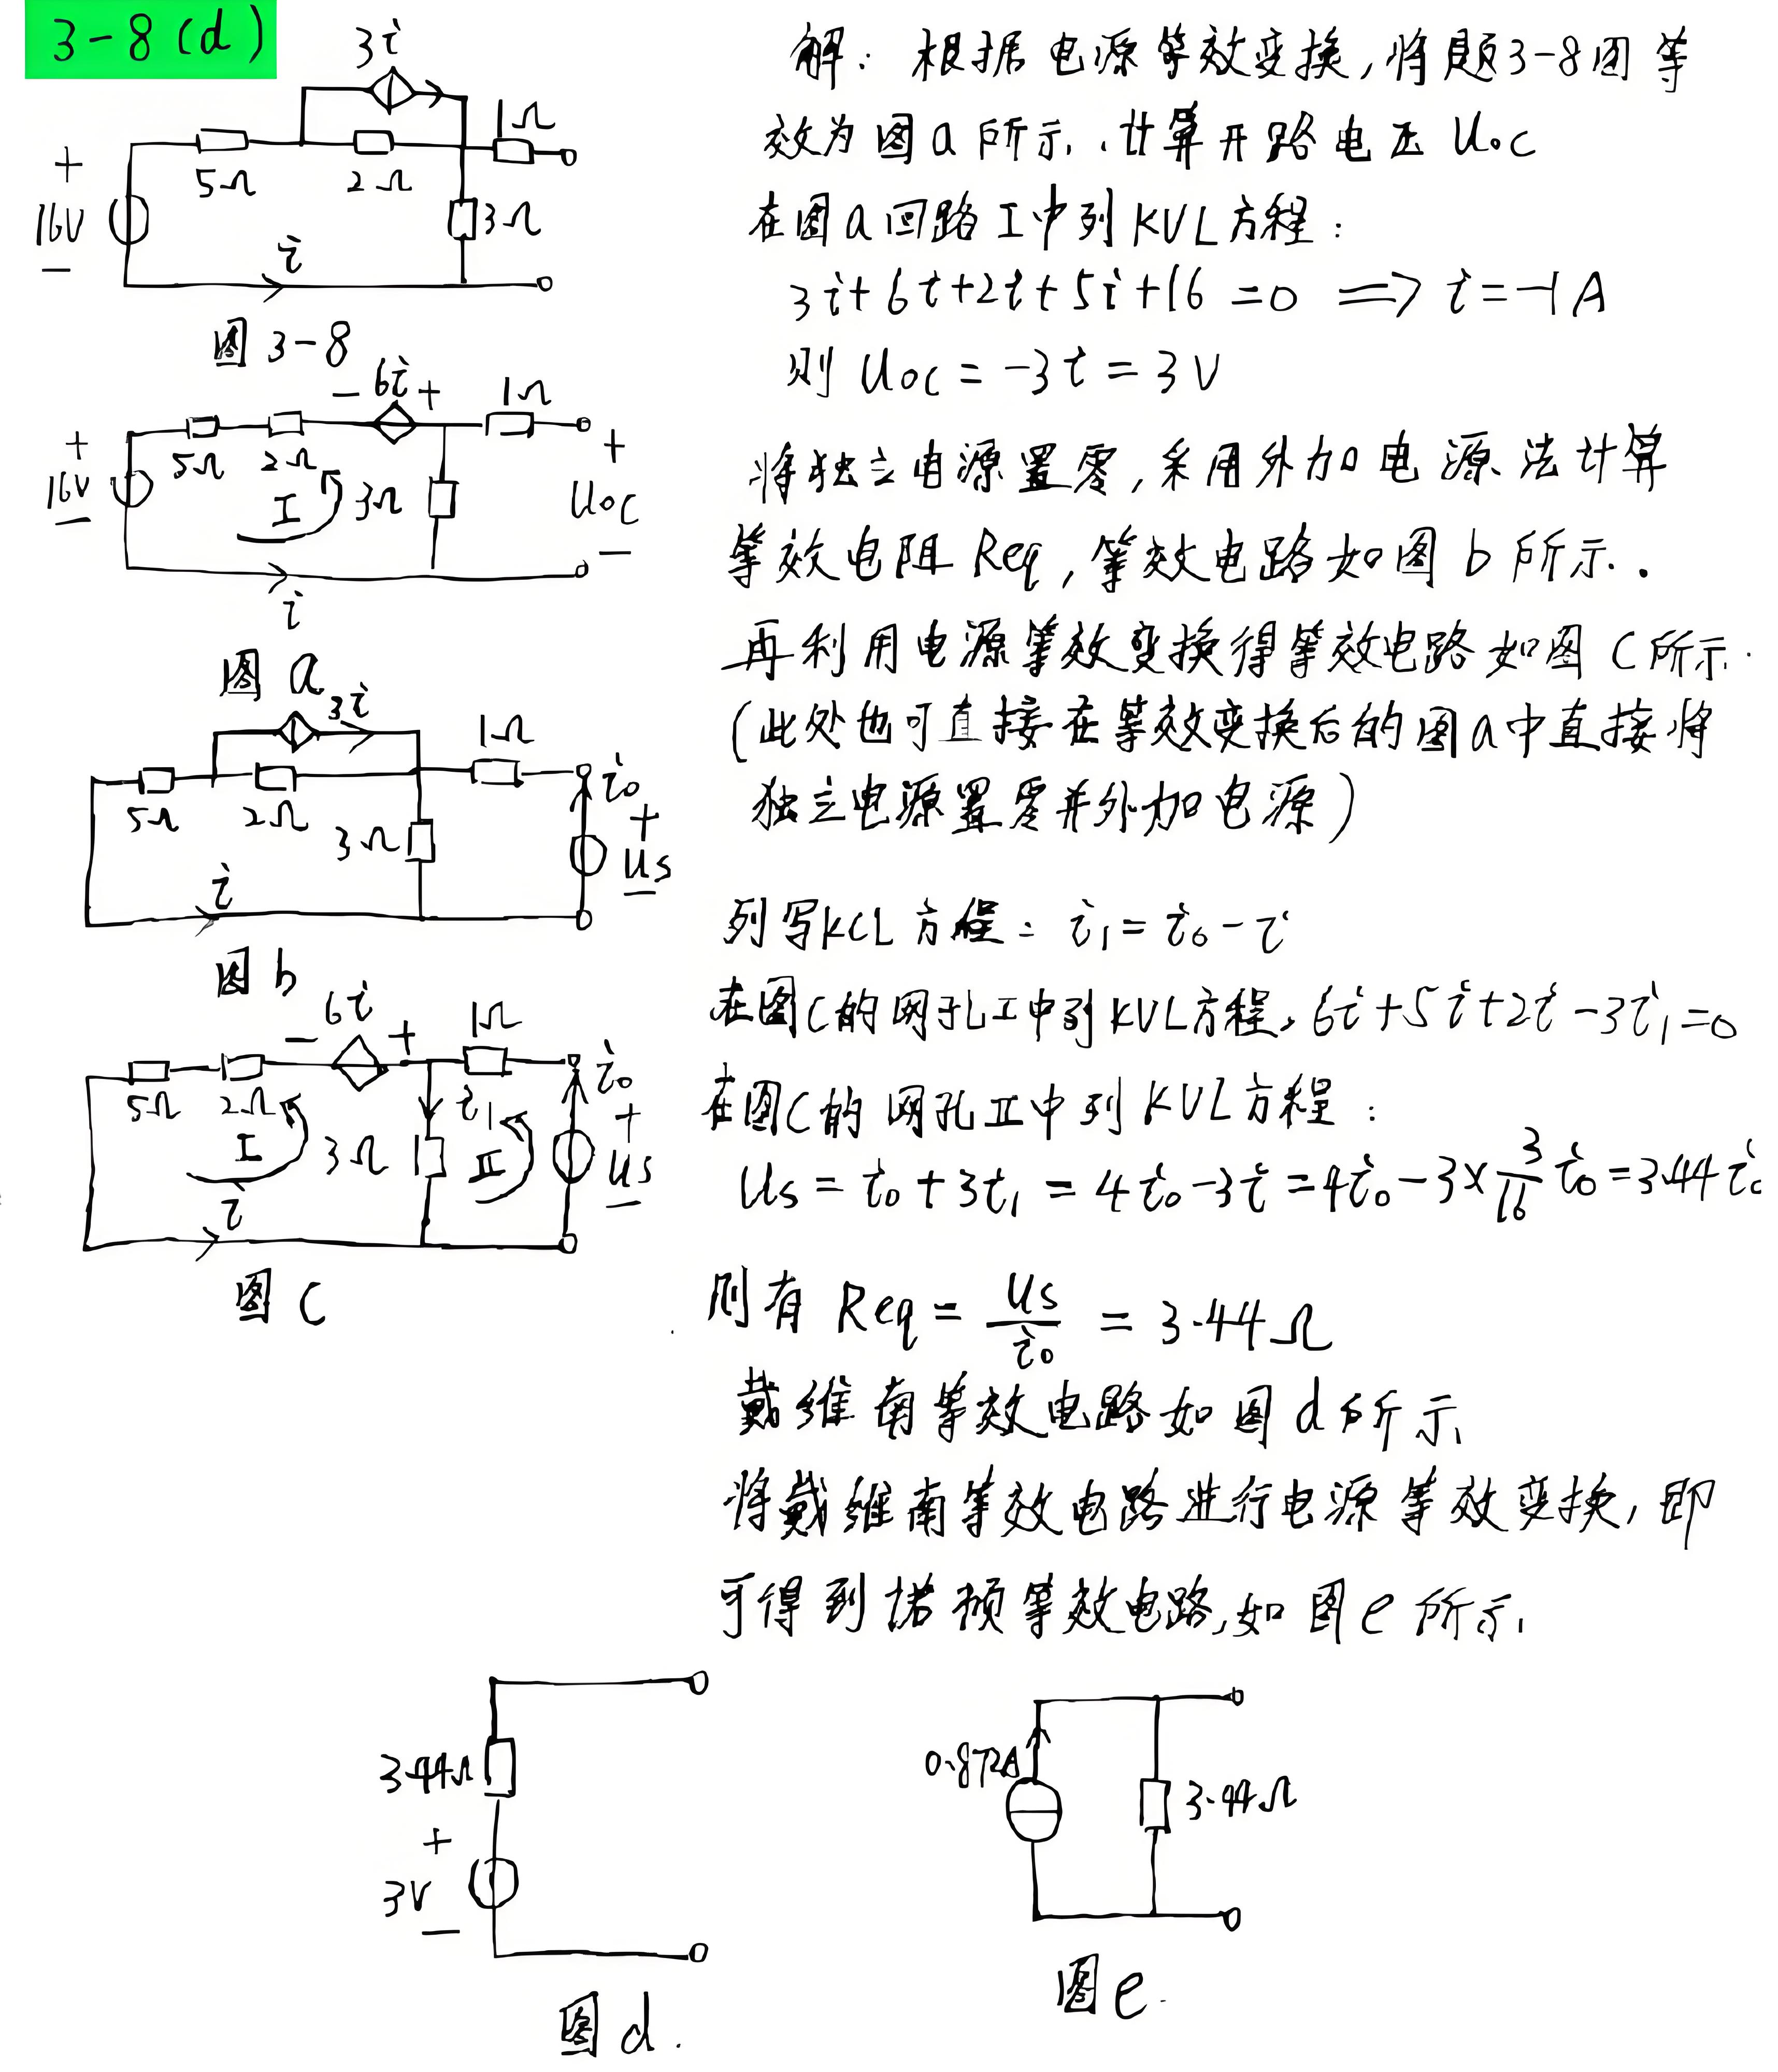 3-8(d)
3i
1Ω
+
16V
-
5Ω
2Ω
3Ω
i
图3-8
- 6i +
1Ω
+
16V
-
5Ω
2Ω
I
3Ω
+
Uoc
-
i
图a
3i
1Ω
5Ω
2Ω
3Ω
i0
+
Us
-
i
图b
- 6i +
1Ω
5Ω
2Ω
I
3Ω
i1
II
i0
+
Us
-
i
图c
解：根据电源等效变换,将题3-8图等
效为图a所示.计算开路电压Uoc
在图a回路I中列KVL方程：
3i+6i+2i+5i+16=0 ⟹ i=-1A
则Uoc=-3i=3V
将独立电源置零,采用外加电源法计算
等效电阻Req,等效电路如图b所示.
再利用电源等效变换得等效电路如图c所示.
(此处也可直接在等效变换后的图a中直接将
独立电源置零并外加电源)
列写KCL方程：i1=i0-i
在图c的网孔I中列KVL方程,6i+5i+2i-3i1=0
在图c的网孔II中列KVL方程：
Us=i0+3i1=4i0-3i=4i0-3×3/16 i0=3.44i0
则有Req=Us/i0=3.44Ω
戴维南等效电路如图d所示
将戴维南等效电路进行电源等效变换,即
可得到诺顿等效电路,如图e所示
3.44Ω
+
3V
-
图d.
0.872A
3.44Ω
图e.